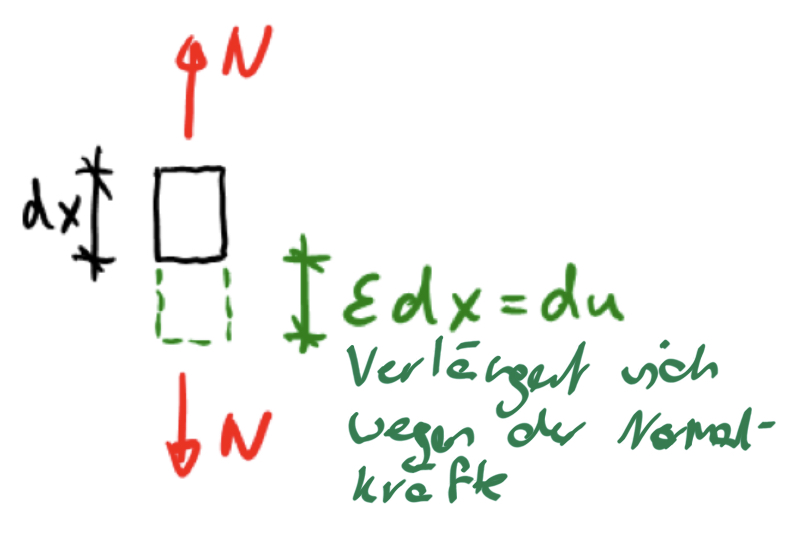 N
dx
εdx = du
Verlängert sich
wegen der Normal-
kräfte
N